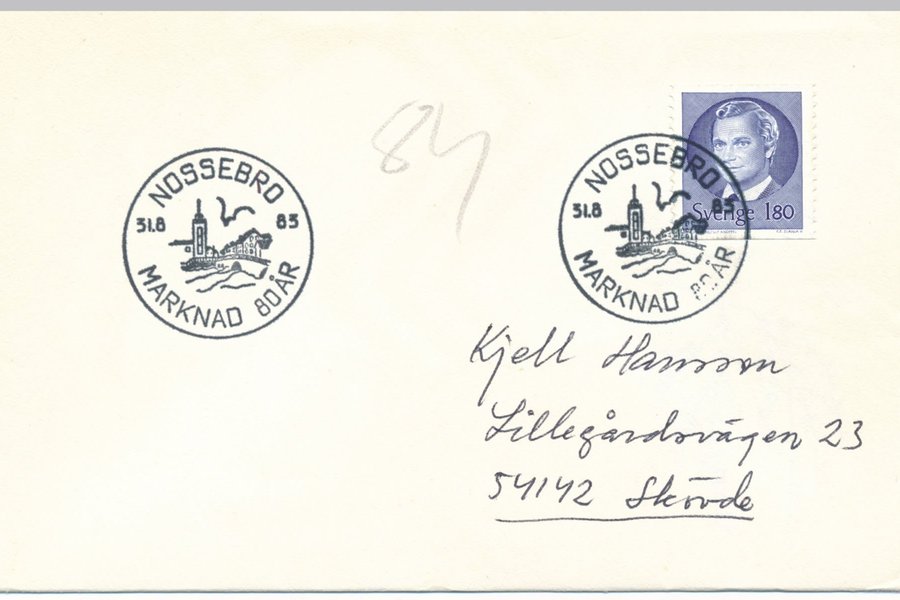 84
NOSSEBRO
31.8 83
MARKNAD 80 ÅR
NOSSEBRO
31.8 83
MARKNAD 80 ÅR
Sverige 180
Kjell Hansson
Lillegårdsvägen 23
54142 Skövde